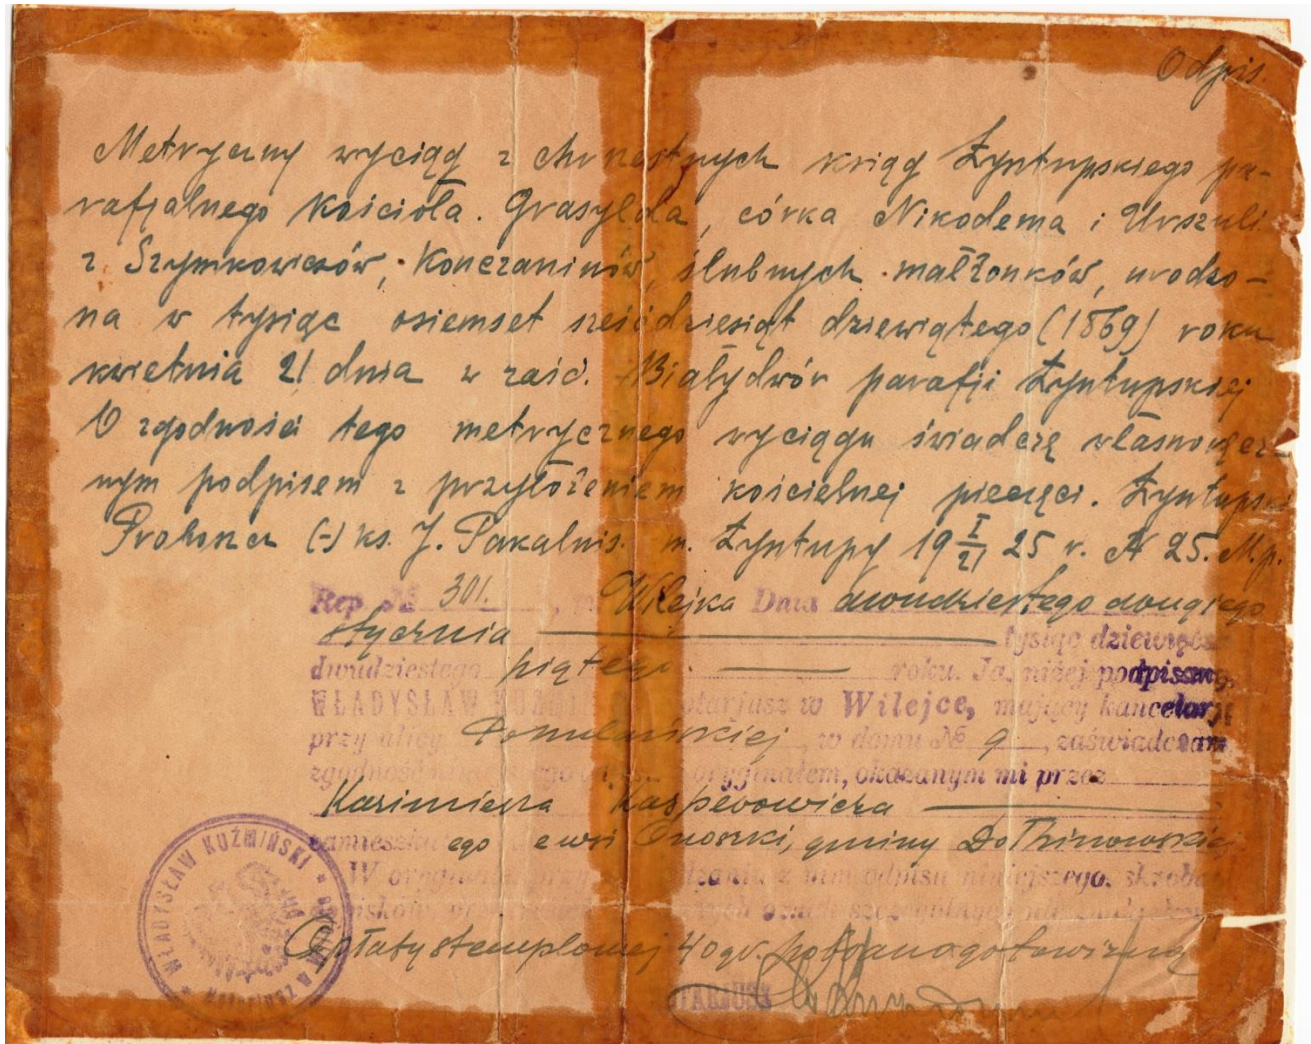 Odpis.
Metryczny wyciąg z chrzestnych ksiąg Łyntupskiego pa-
rafjalnego kościoła. Grasylda, córka Nikodema i Urszuli
z Szymkowiczów, Konczaninów, ślubnych małżonków, urodzo-
na w tysiąc osiemset sześćdziesiąt dziewiątego (1869) roku
kwietnia 21 dnia w zaśc. Białydwór parafji Łyntupskiej
O zgodności tego metrycznego wyciągu świadczę własnoręcz-
nym podpisem z przyłożeniem kościelnej pieczęci. Łyntupski
Proboszcz (-) ks. J. Pakalnis. m. Łyntupy 19 I/21 25 r. N 25. M.p.
Rep. № 301. , Wilejka Dnia dwudziestego drugiego
stycznia tysiąc dziewięćset
dwudziestego piątego roku. Ja, niżej podpisany,
WŁADYSŁAW KUŹMIŃSKI Notarjusz w Wilejce, mający kancelarję
przy ulicy , w domu № 9 , zaświadczam
zgodność niniejszego odpisu z oryginałem, okazanym mi przez
Kazimierza Kasperowicza
zamieszkałego we wsi Onoszki, gminy Dołhinowskiej
W oryginale przy z nim odpisu niniejszego, skrobań
szczególnych
Opłaty stemplowej 40 gr. pobrano gotowizną
NOTARJUSZ
WŁADYSŁAW KUŹMIŃSKI